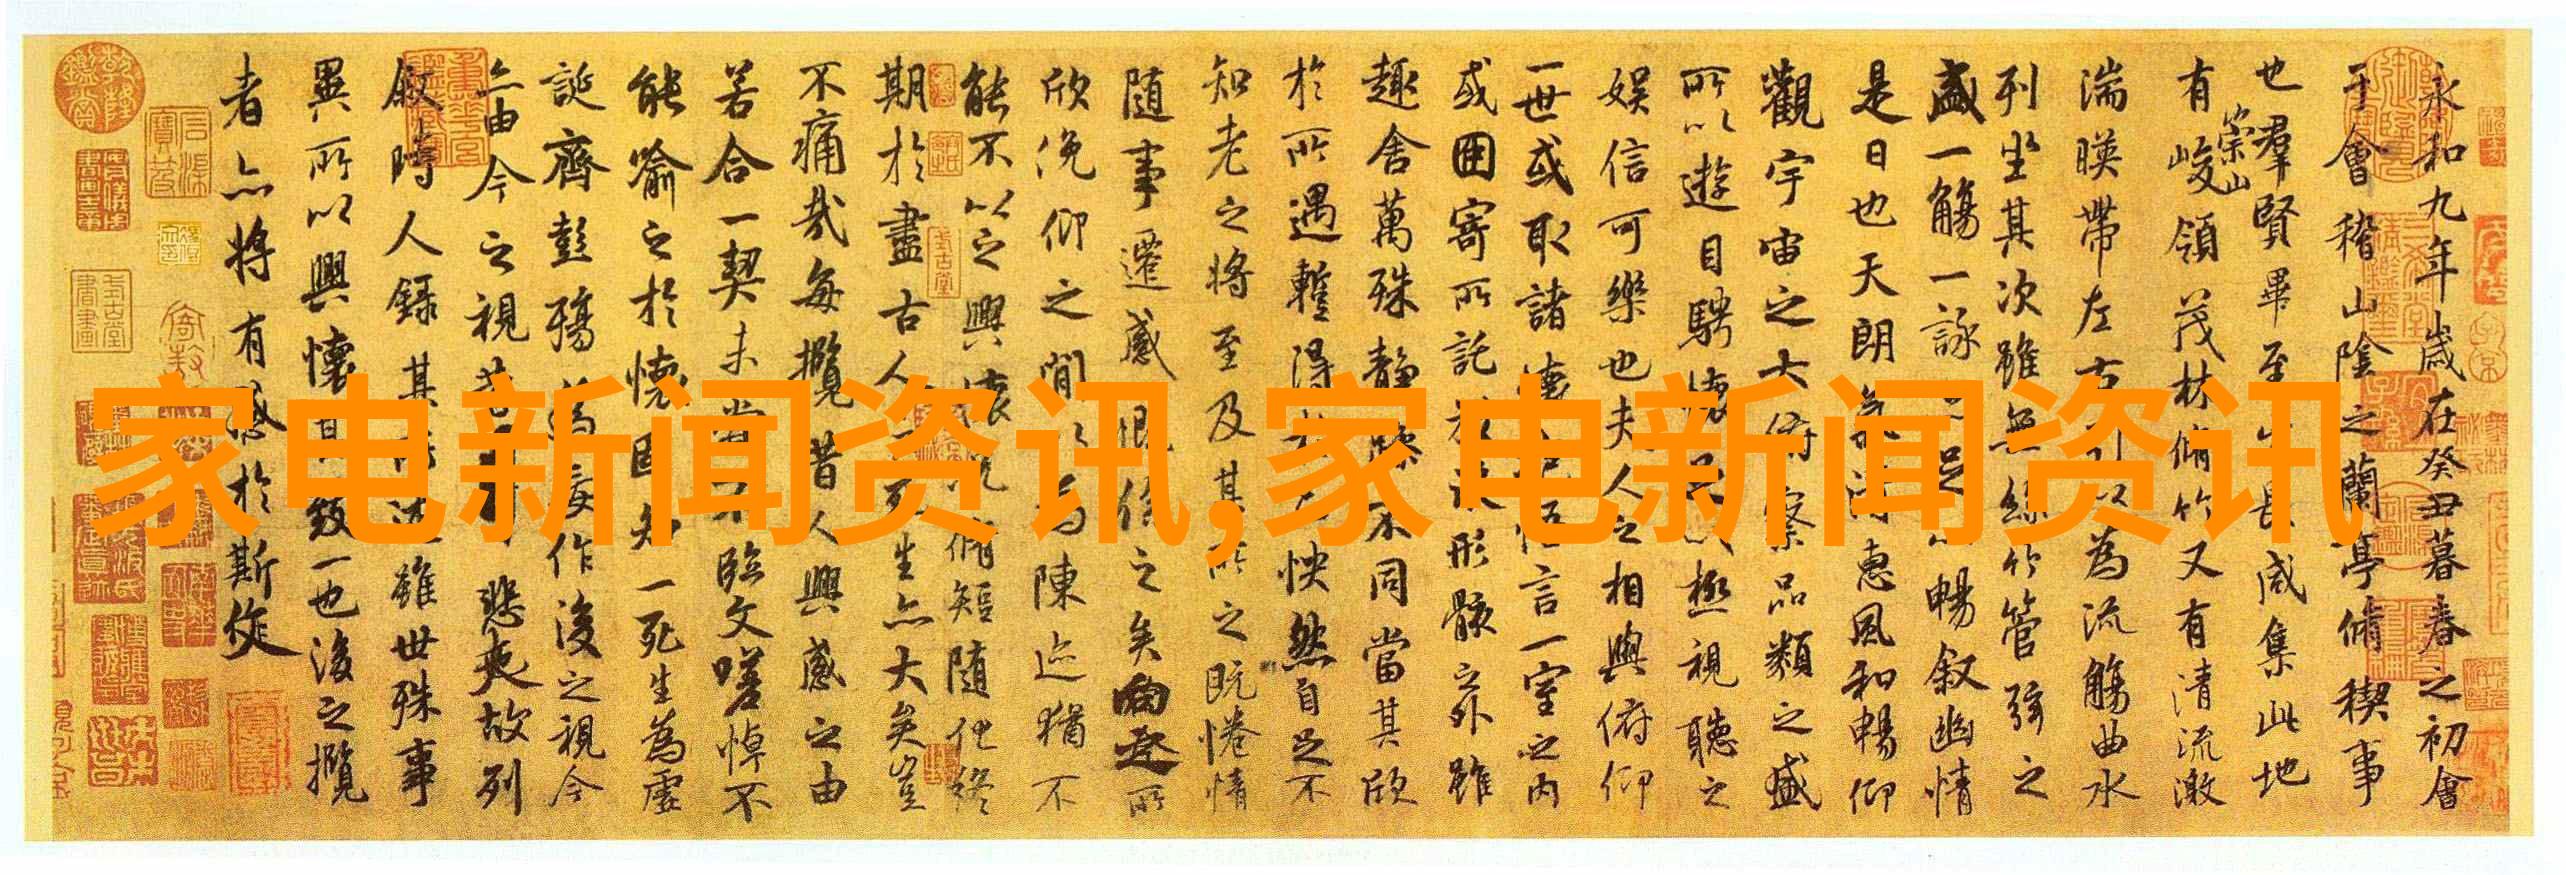 家电新闻资讯,家电新闻资讯
永和九年歲在癸丑暮春之初會
于會稽山陰之蘭亭脩稧事
也羣賢畢至少長咸集此地
有崇山峻領茂林脩竹又有清流激
湍暎帶左右引以為流觴曲水
列坐其次雖無絲竹管弦之
盛一觴一詠亦足以暢叙幽情
是日也天朗氣清惠風和暢仰
觀宇宙之大俯察品類之盛
所以遊目騁懷足以極視聽之
娛信可樂也夫人之相與俯仰
一世或取諸懷抱悟言一室之內
或因寄所託放浪形骸之外雖
趣舍萬殊靜躁不同當其欣
於所遇暫得於己怏然自足不
知老之將至及其所之既惓情
隨事遷感慨係之矣向之所
欣俛仰之間以為陳迹猶不
能不以之興懷況脩短隨化終
期於盡古人云死生亦大矣豈
不痛哉每攬昔人興感之由
若合一契未嘗不臨文嗟悼不
能喻之於懷固知一死生為虛
誕齊彭殤為妄作後之視今
亦由今之視昔悲夫故列
叙時人錄其所述雖世殊事
異所以興懷其致一也後之攬
者亦將有感於斯文